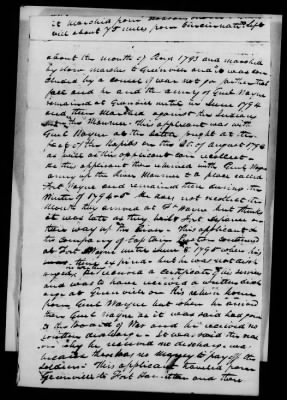 it marched from
will about 75 miles from Cincinnati
about the month of Aug 1793 and marched
by slow marches to Greenville and it was con
cluded by a council of war not go further that
fall and he and the army of Genl Wayne
remained at Greenville until in June 1794
and then marched against the Indians
on the Maumee. This applicant was with
Genl Wayne at the battle fought at the
foot of the Rapids on the 20 of August 1794
as well as this applicant can recollect
he this applicant then marched with Genl Wayne
army up the River Maumee to a place called
Fort Wayne and remained there during the
Winter of 1794-5 he does not recollect the
Month they arrived at Ft Wayne but thinks
it was late as they built Fort Defiance
there way up the River. This applicant &
the company of Captain continued
at Fort Wayne until June 1795 when his
time expired but he was not dis
charged he received a certificate of his services
and was to have received a written disch
arge at Greenville on his return home
from Genl Wayne but when he arrived
there Genl Wayne as it was said had gone
to the board of War and he received no
written discharge. It was said the rea
son why he received no discharge was
because there was no money to pay off the
soldiers. This applicant traveled from
Greenville to Fort Hamilton and there